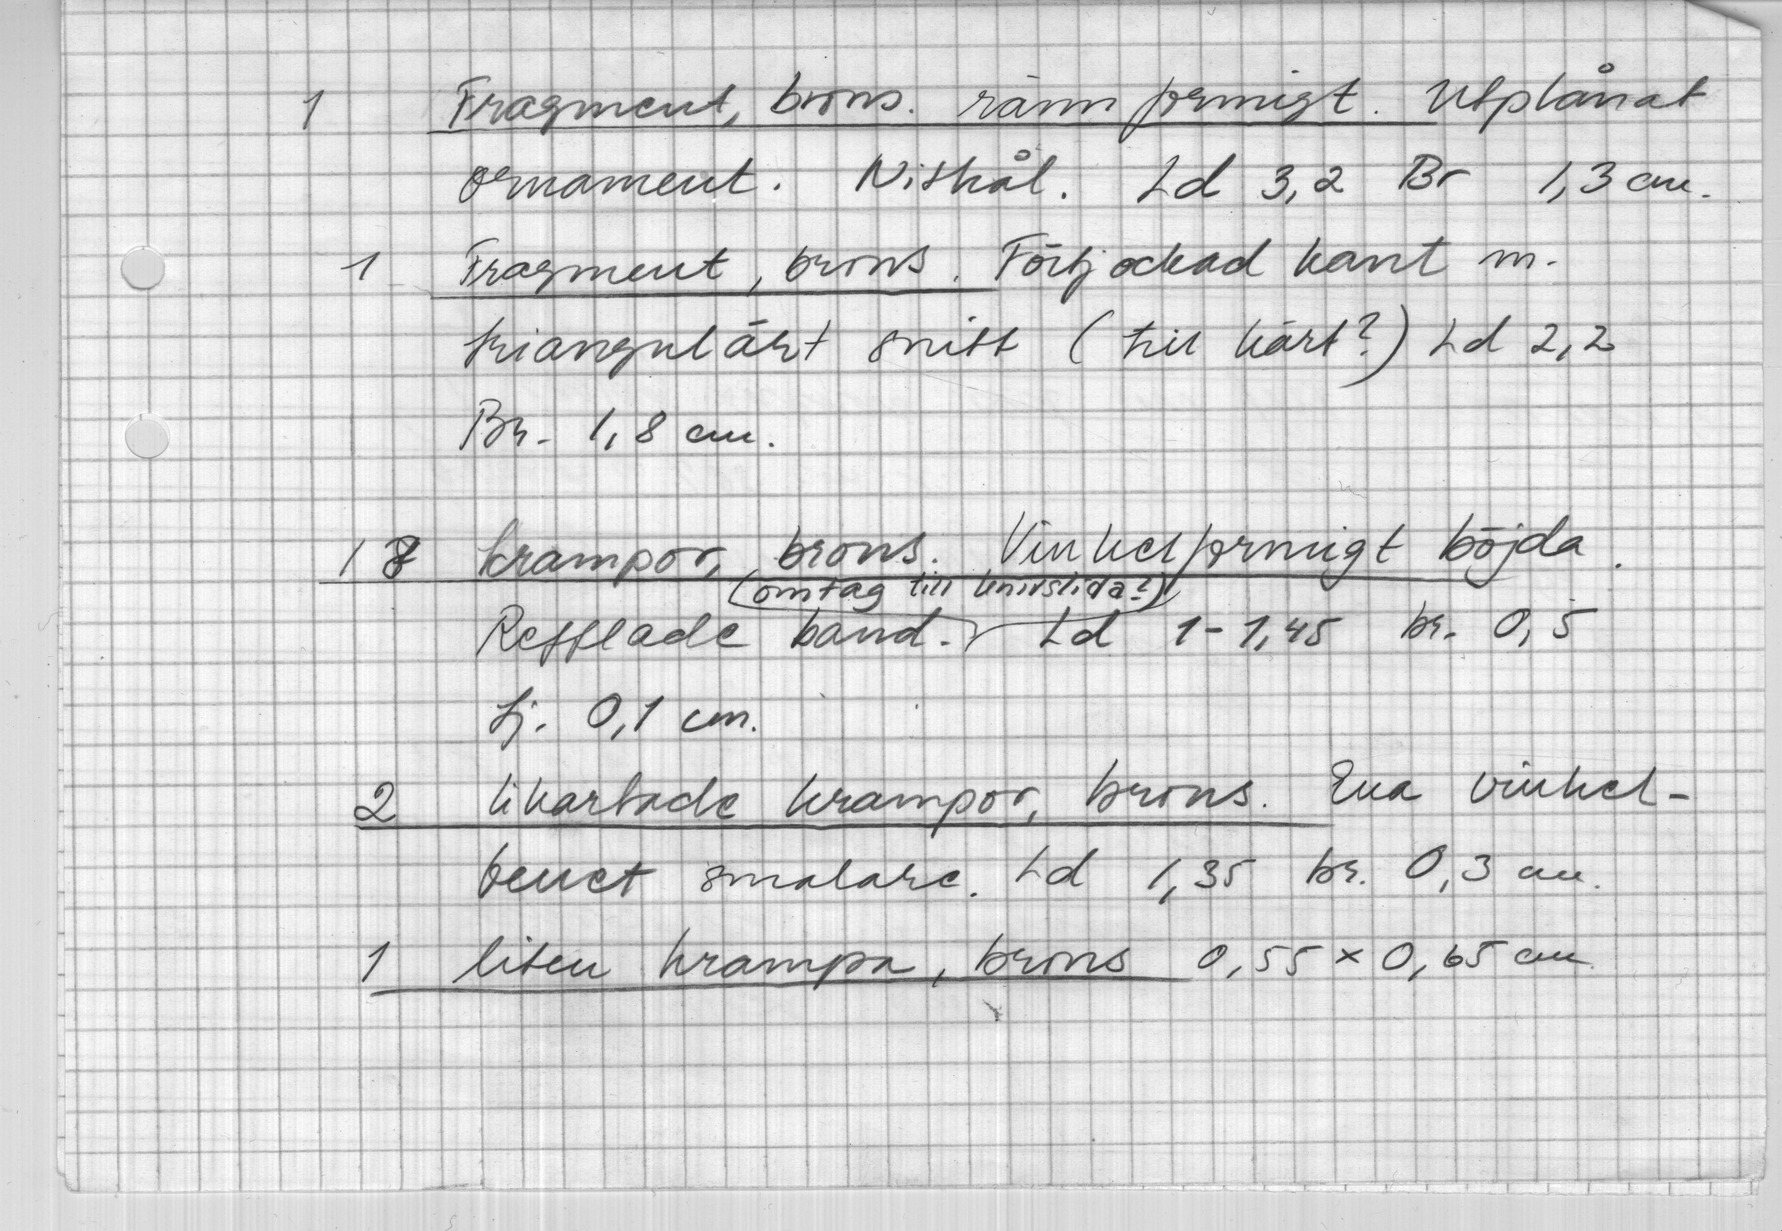 1 Fragment, brons. rännformigt. Utplånat
ornament. Nithål. Ld 3,2 Br 1,3 cm.
1 Fragment, brons. Förtjockad kant m.
triangulärt snitt (till kärl?) Ld 2,2
Br. 1,8 cm.
18 krampor, brons. Vinkelformigt böjda.
(omtag till knivslida?)
Refflade band. Ld 1-1,45 br. 0,5
tj. 0,1 cm.
2 likartade krampor, brons. Ena vinkel-
benet smalare. Ld 1,35 br. 0,3 cm.
1 liten krampa, brons 0,55 x 0,65 cm.